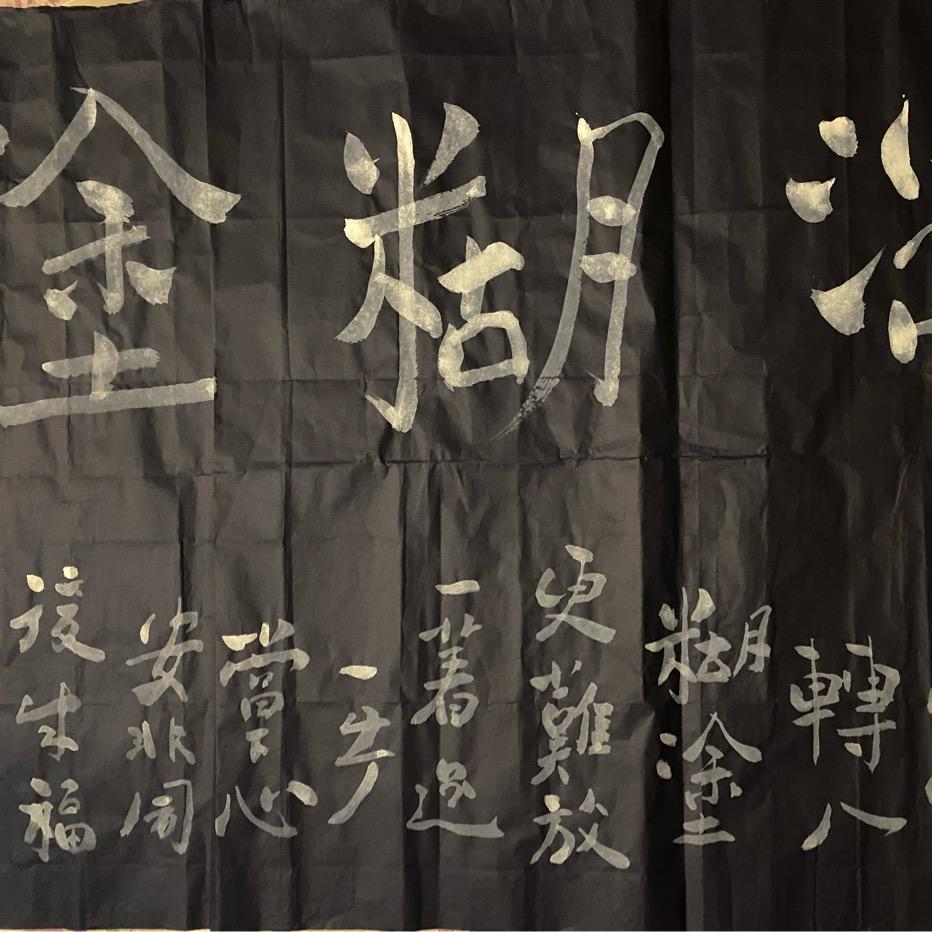 糊塗
轉入
糊塗
更難放
一著退
一步
當下心
安非圖
後来福